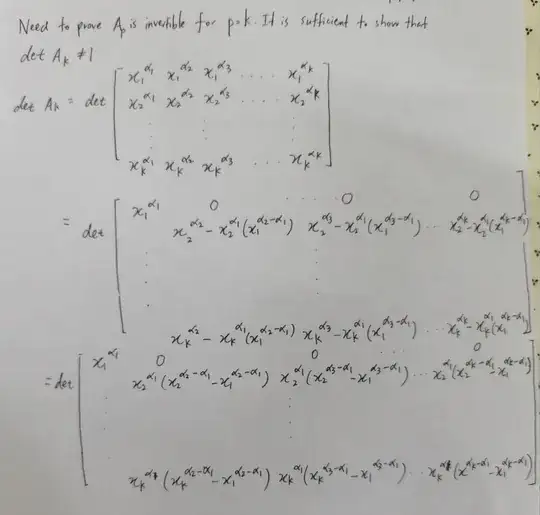 Need to prove Aₚ is invertible for p=k. It is sufficient to show that
det Aₖ ≠ 1
det Aₖ = det [ x₁^α₁ x₁^α₂ x₁^α₃ .... x₁^αₖ
x₂^α₁ x₂^α₂ x₂^α₃ x₂^αₖ
⋮ ⋮ ⋮
xₖ^α₁ xₖ^α₂ xₖ^α₃ .... xₖ^αₖ ]
= det [ x₁^α₁ 0 ..... 0 0
x₂^α₂ - x₂^α₁(x₁^(α₂-α₁)) x₂^α₃ - x₂^α₁(x₁^(α₃-α₁)) ... x₂^αₖ - x₂^α₁(x₁^(αₖ-α₁))
⋮ ⋮ ⋮
xₖ^α₂ - xₖ^α₁(x₁^(α₂-α₁)) xₖ^α₃ - xₖ^α₁(x₁^(α₃-α₁)) ... xₖ^αₖ - xₖ^α₁(x₁^(αₖ-α₁)) ]
= det [ x₁^α₁ 0 0 ... 0
x₂^α₁(x₂^(α₂-α₁) - x₁^(α₂-α₁)) x₂^α₁(x₂^(α₃-α₁) - x₁^(α₃-α₁)) ... x₂^α₁(x₂^(αₖ-α₁) - x₁^(αₖ-α₁))
⋮ ⋮
(xₖ^(α₂-α₁) - x₁^(α₂-α₁)) xₖ^α₁(xₖ^(α₃-α₁) - x₁^(α₃-α₁)) ... (x^(αₖ-α₁) - x₁^(αₖ-α₁)) ]